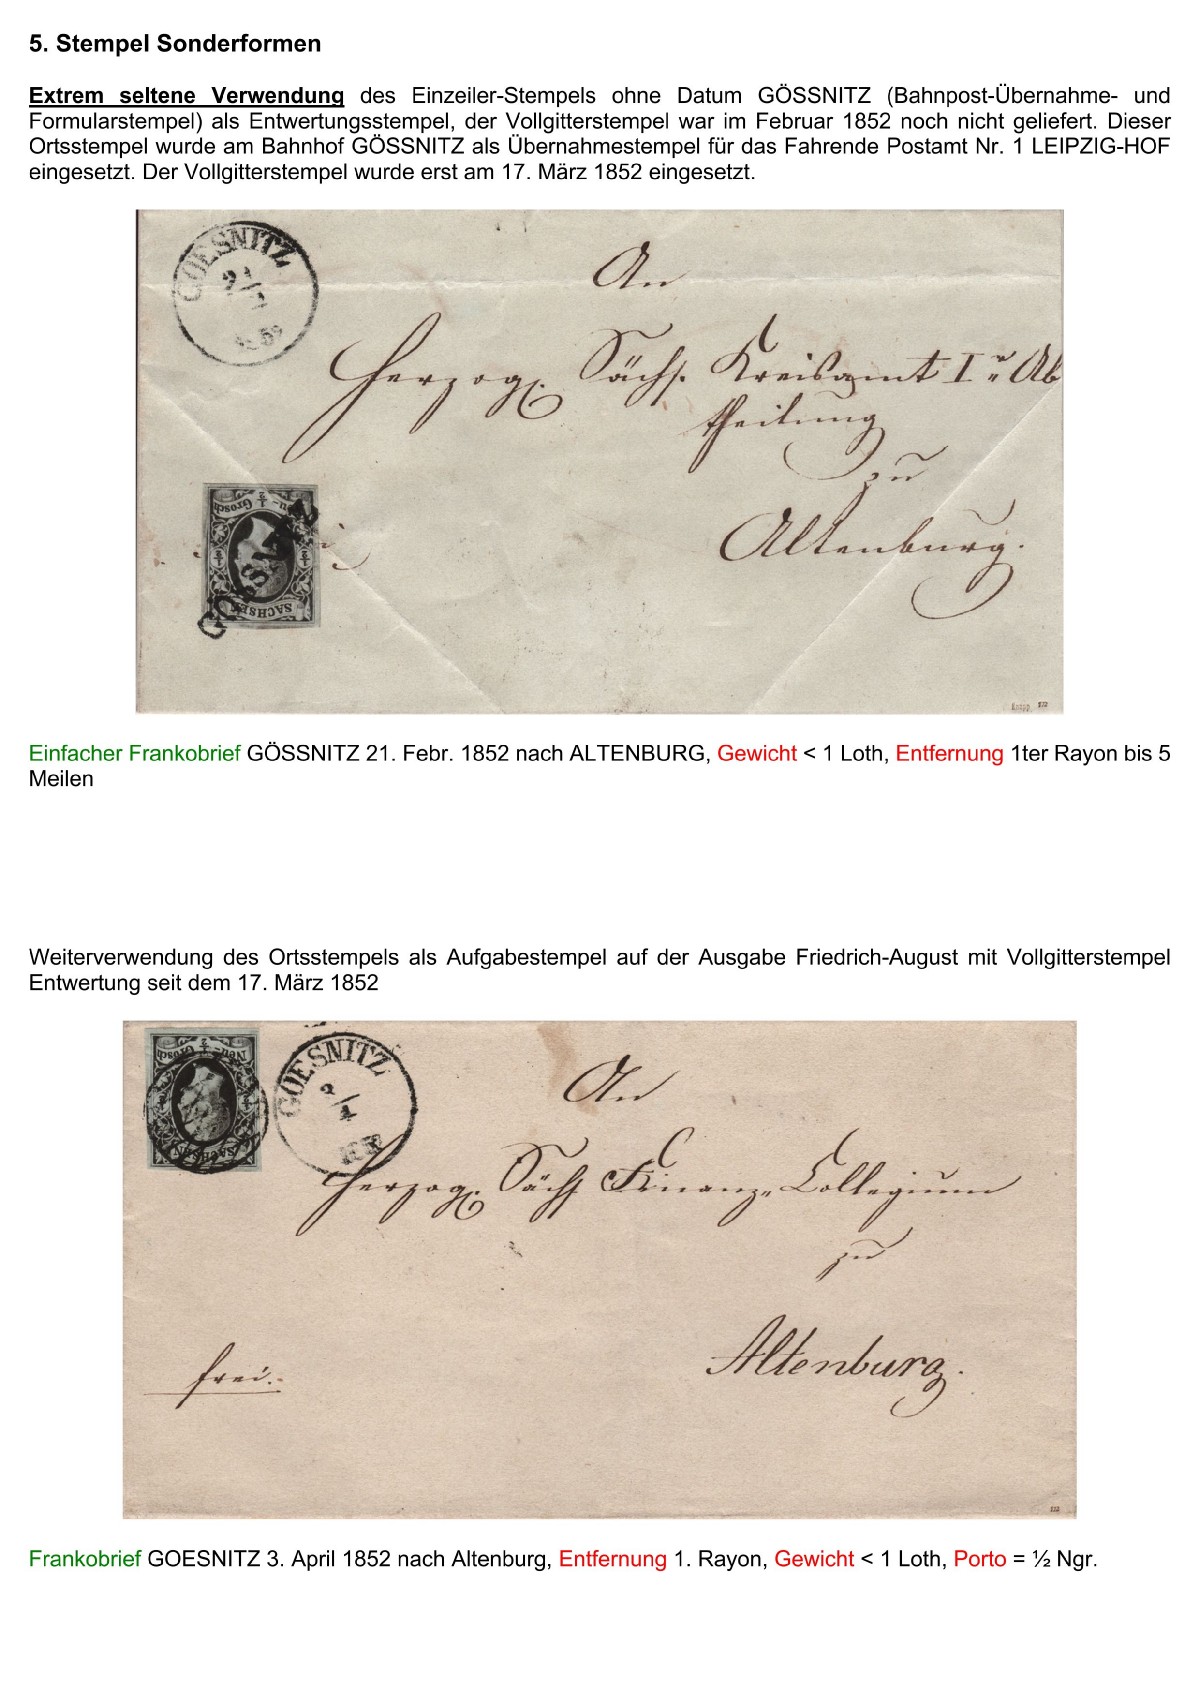 5. Stempel Sonderformen
Extrem seltene Verwendung des Einzeiler-Stempels ohne Datum GÖSSNITZ (Bahnpost-Übernahme- und
Formularstempel) als Entwertungsstempel, der Vollgitterstempel war im Februar 1852 noch nicht geliefert. Dieser
Ortsstempel wurde am Bahnhof GÖSSNITZ als Übernahmestempel für das Fahrende Postamt Nr. 1 LEIPZIG-HOF
eingesetzt. Der Vollgitterstempel wurde erst am 17. März 1852 eingesetzt.
GOESNITZ
An
Herzogl. Sächs. Kreisamt I. Ab
theilung
zu
Altenburg.
SACHSEN
Einfacher Frankobrief GÖSSNITZ 21. Febr. 1852 nach ALTENBURG, Gewicht < 1 Loth, Entfernung 1ter Rayon bis 5
Meilen
Weiterverwendung des Ortsstempels als Aufgabestempel auf der Ausgabe Friedrich-August mit Vollgitterstempel
Entwertung seit dem 17. März 1852
GOESNITZ
An
Herzogl. Sächs Finanz-Collegium
zu
Altenburg.
frei.
Frankobrief GOESNITZ 3. April 1852 nach Altenburg, Entfernung 1. Rayon, Gewicht < 1 Loth, Porto = ½ Ngr.